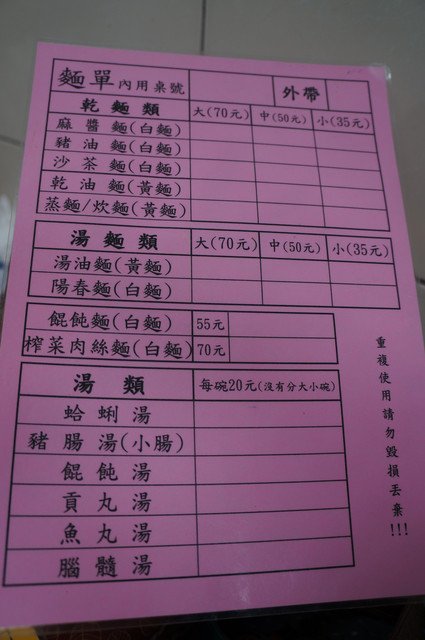 麵單 內用桌號 外帶
乾麵類 大(70元) 中(50元) 小(35元)
麻醬麵(白麵)
豬油麵(白麵)
沙茶麵(白麵)
乾油麵(黃麵)
蒸麵/炊麵(黃麵)
湯麵類 大(70元) 中(50元) 小(35元)
湯油麵(黃麵)
陽春麵(白麵)
餛飩麵(白麵) 55元
榨菜肉絲麵(白麵) 70元
湯類 每碗20元(沒有分大小碗)
蛤蜊湯
豬腸湯(小腸)
餛飩湯
貢丸湯
魚丸湯
腦髓湯
重複使用請勿毀損丟棄!!!